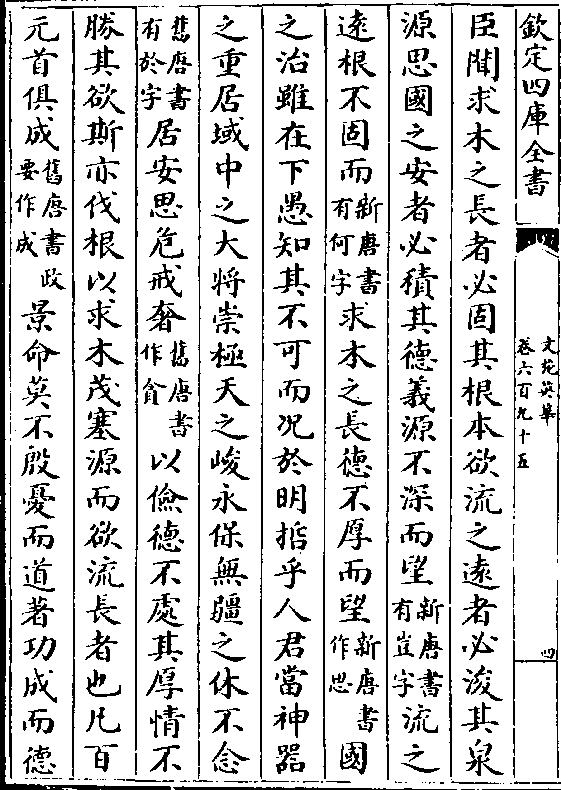 欽定四庫全書
文苑英華
卷六百九十五
四
臣聞求木之長者必固其根本欲流之遠者必浚其泉
源思國之安者必積其德義源不深而望新唐書有豈字流之
遠根不固而新唐書有何字求木之長德不厚而望新唐書作思國
之治雖在下愚知其不可而况於明哲乎人君當神器
之重居域中之大將崇極天之峻永保無疆之休不念
舊唐書有於字居安思危戒奢舊唐書作貪以儉德不處其厚情不
勝其欲斯亦伐根以求木茂塞源而欲流長者也凡百
元首俱成舊唐書政要作成景命莫不殷憂而道著功成而德